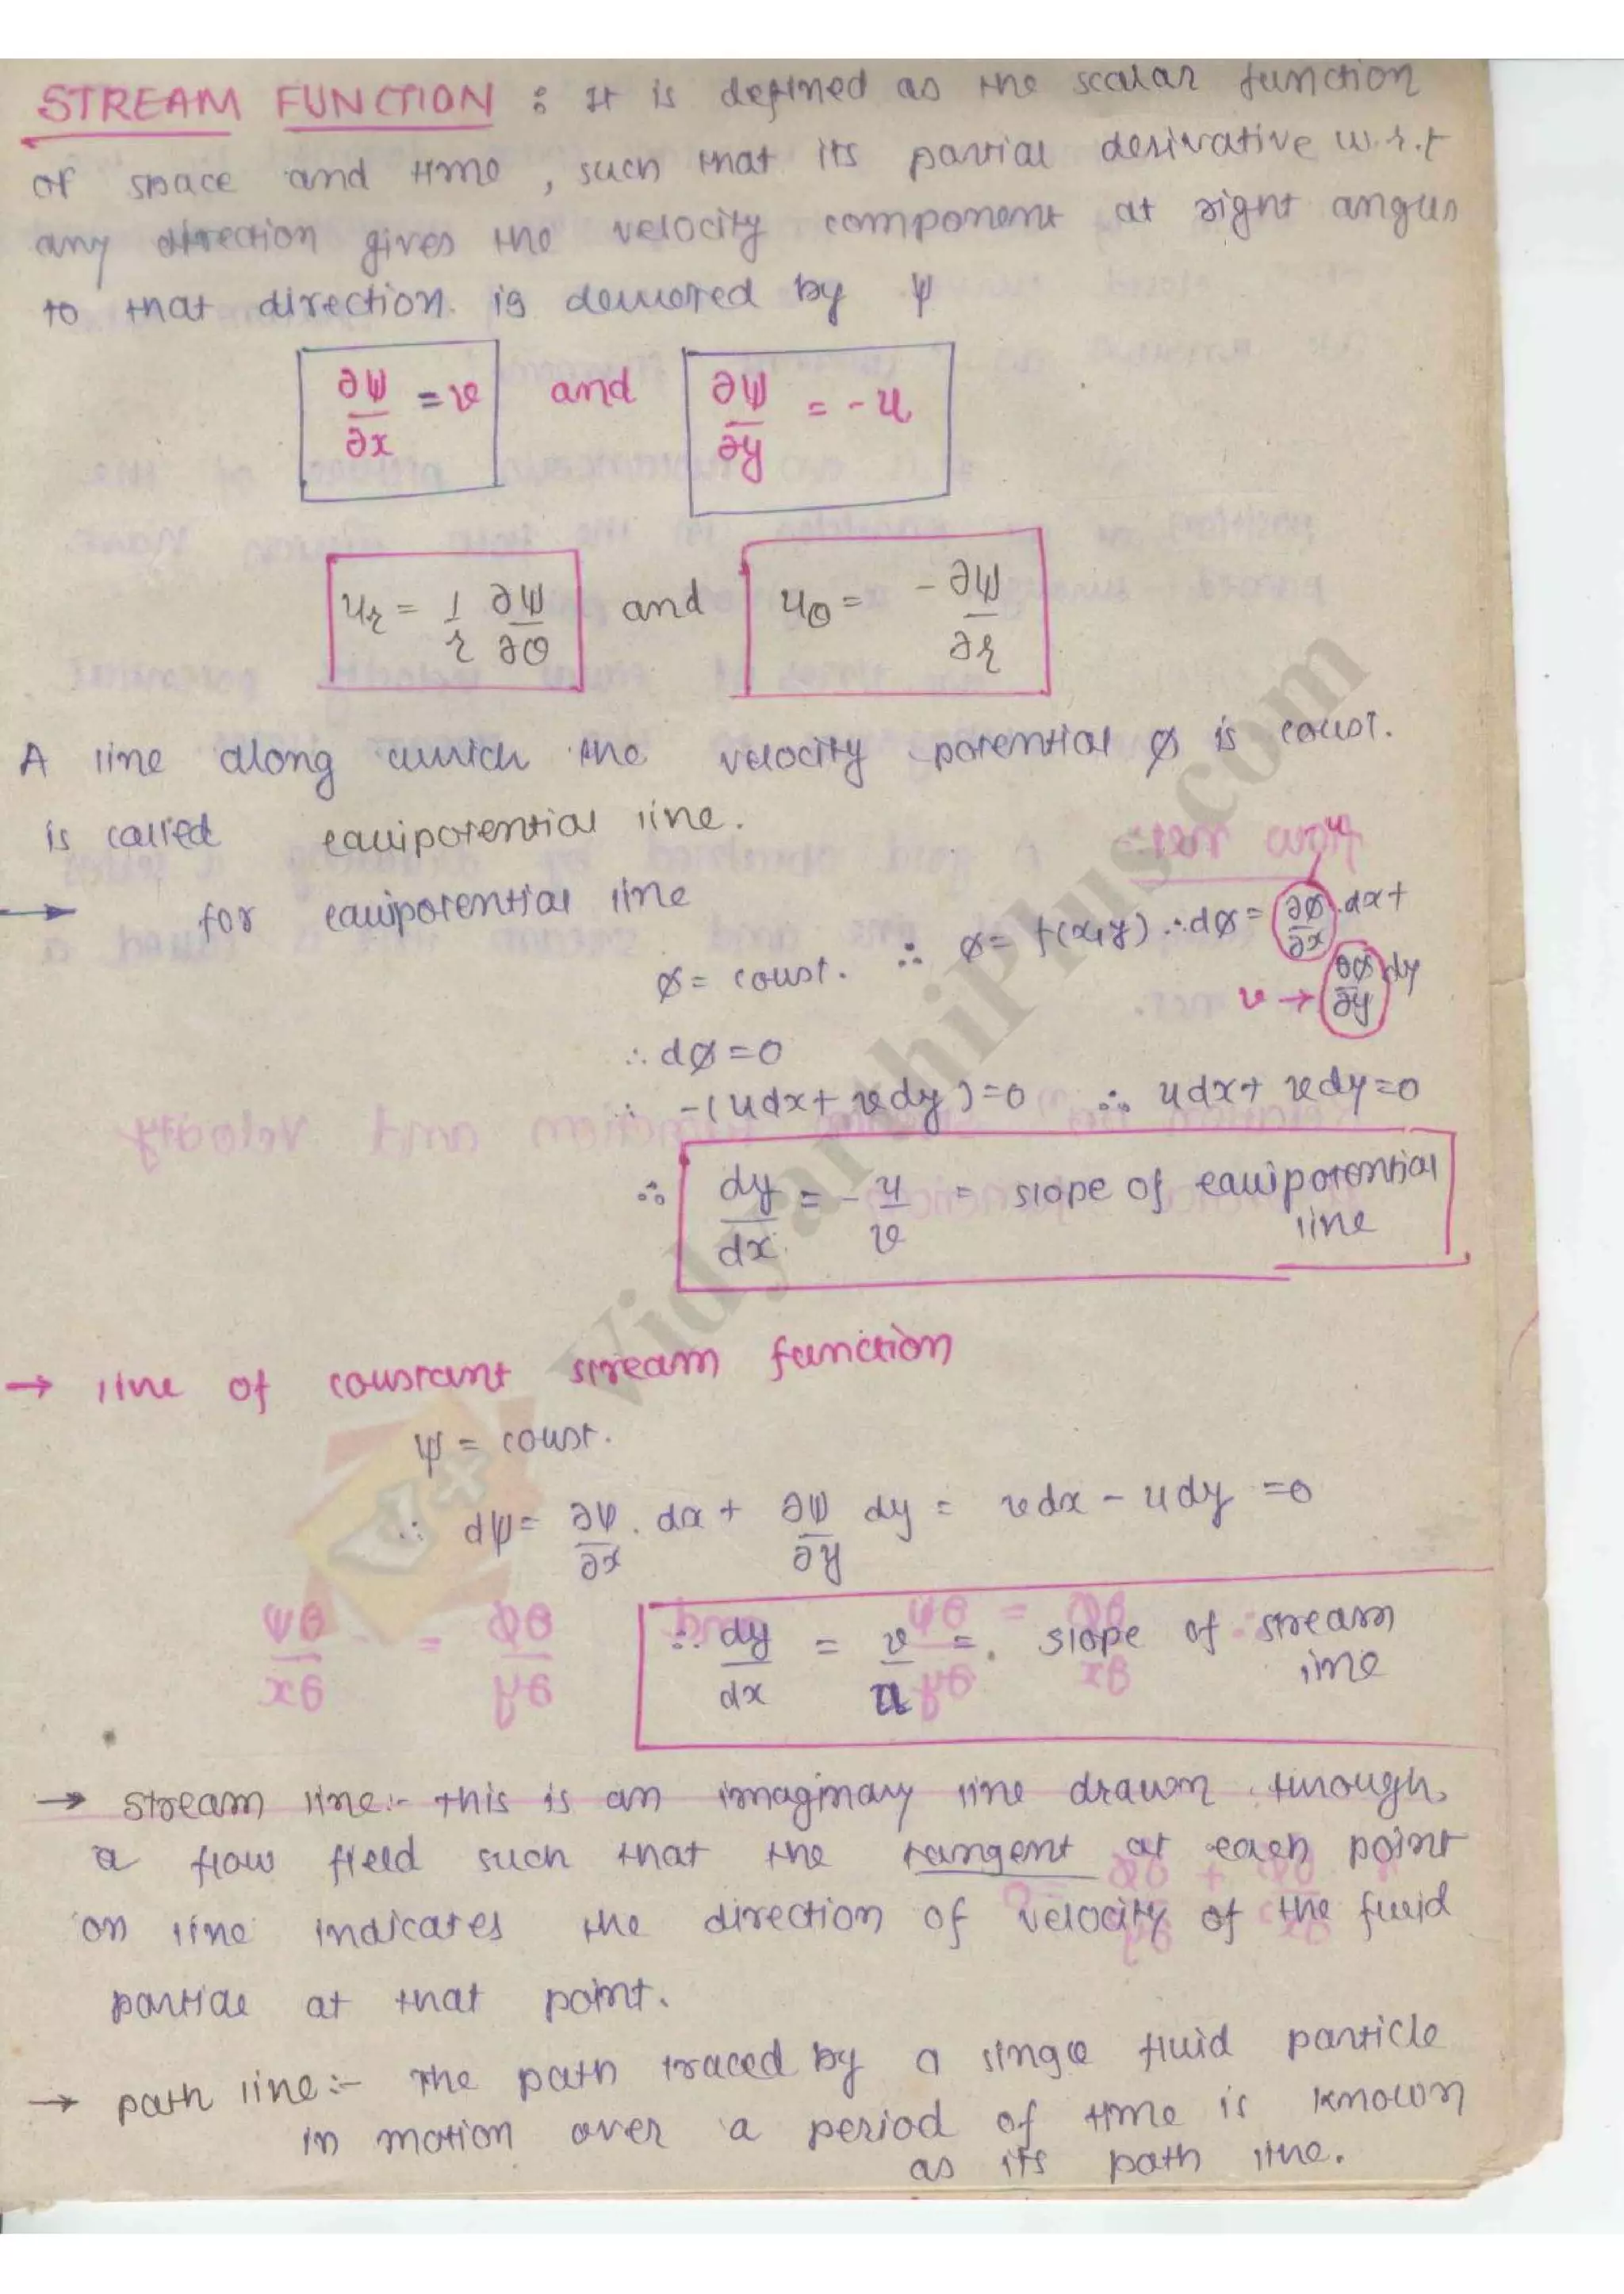 STREAM FUNCTION : It is defined as the scalar function
of space and time, such that its partial derivative w.r.t
any direction gives the velocity component at right angles
to that direction. is denoted by ψ
∂ψ/∂x = v and ∂ψ/∂y = -u
u_r = 1/r ∂ψ/∂θ and u_θ = -∂ψ/∂r
A line along which the velocity potential ø is const.
is called equipotential line.
→ for equipotential line
ø = const. ∴ ø = f(x,y) ∴ dø = ∂ø/∂x . dx +
u
v → ∂ø/∂y dy
∴ dø = 0
∴ -(udx + vdy) = 0 ∴ udx + vdy = 0
∴ dy/dx = -u/v = slope of equipotential
line
→ line of constant stream function
ψ = const.
∴ dψ = ∂ψ/∂x . dx + ∂ψ/∂y dy = vdx - udy = 0
∴ dy/dx = v/u = slope of stream
line
→ stream line:- this is an imaginary line drawn through
a flow field such that the tangent at each point
on line indicates the direction of velocity of the fluid
particle at that point.
→ path line:- The path traced by a single fluid particle
in motion over a period of time is known
as its path line.
VidyarthiPlus.com
V+